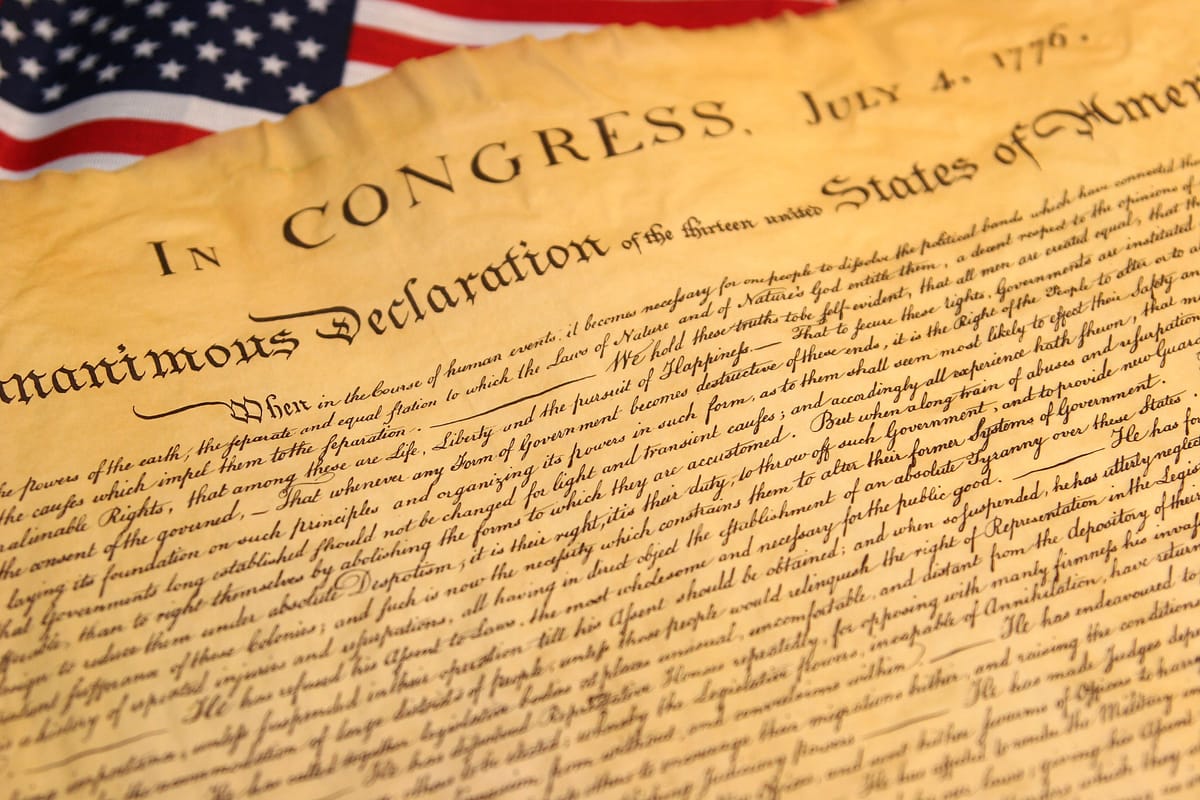 IN CONGRESS, JULY 4, 1776.
nanimous Declaration of the thirteen united States of Amer
When in the Course of human events, it becomes necessary for one people to dissolve the political bands which have connected the
he powers of the earth, the separate and equal station to which the Laws of Nature and of Nature's God entitle them, a decent respect to the opinions of
the causes which impel them to the separation. — We hold these truths to be self-evident, that all men are created equal, that th
nalienable Rights, that among these are Life, Liberty and the pursuit of Happiness.— That to secure these rights, Governments are instituted
the consent of the governed, — That whenever any Form of Government becomes destructive of these ends, it is the Right of the People to alter or to a
laying its foundation on such principles and organizing its powers in such form, as to them shall seem most likely to effect their Safety an
hat Governments long established should not be changed for light and transient causes; and accordingly all experience hath shewn, that m
than to right themselves by abolishing the forms to which they are accustomed. But when a long train of abuses and usurpation
to reduce them under absolute Despotism, it is their right, it is their duty, to throw off such Government, and to provide new Guard
sufferance of these Colonies; and such is now the necessity which constrains them to alter their former Systems of Government.
a history of repeated injuries and usurpations, all having in direct object the establishment of an absolute Tyranny over these States.
He has refused his Assent to Laws, the most wholesome and necessary for the public good. — He has fo
importance, unless suspended in their operation till his Assent should be obtained; and when so suspended, he has utterly neglec
accommodation of large districts of people, unless those people would relinquish the right of Representation in the Legis
He has called together legislative bodies at places unusual, uncomfortable, and distant from the depository of their
He has dissolved Representative Houses repeatedly, for opposing with manly firmness his inva
to be elected; whereby the Legislative powers, incapable of Annihilation, have return
from without, and convulsions within. — He has endeavoured to
to encourage their migrations hither, and raising the condition
Judiciary powers — He has made Judges dep
and sent hither swarms of Officers to har
He has affected to render the Military
our laws; giving his Assent